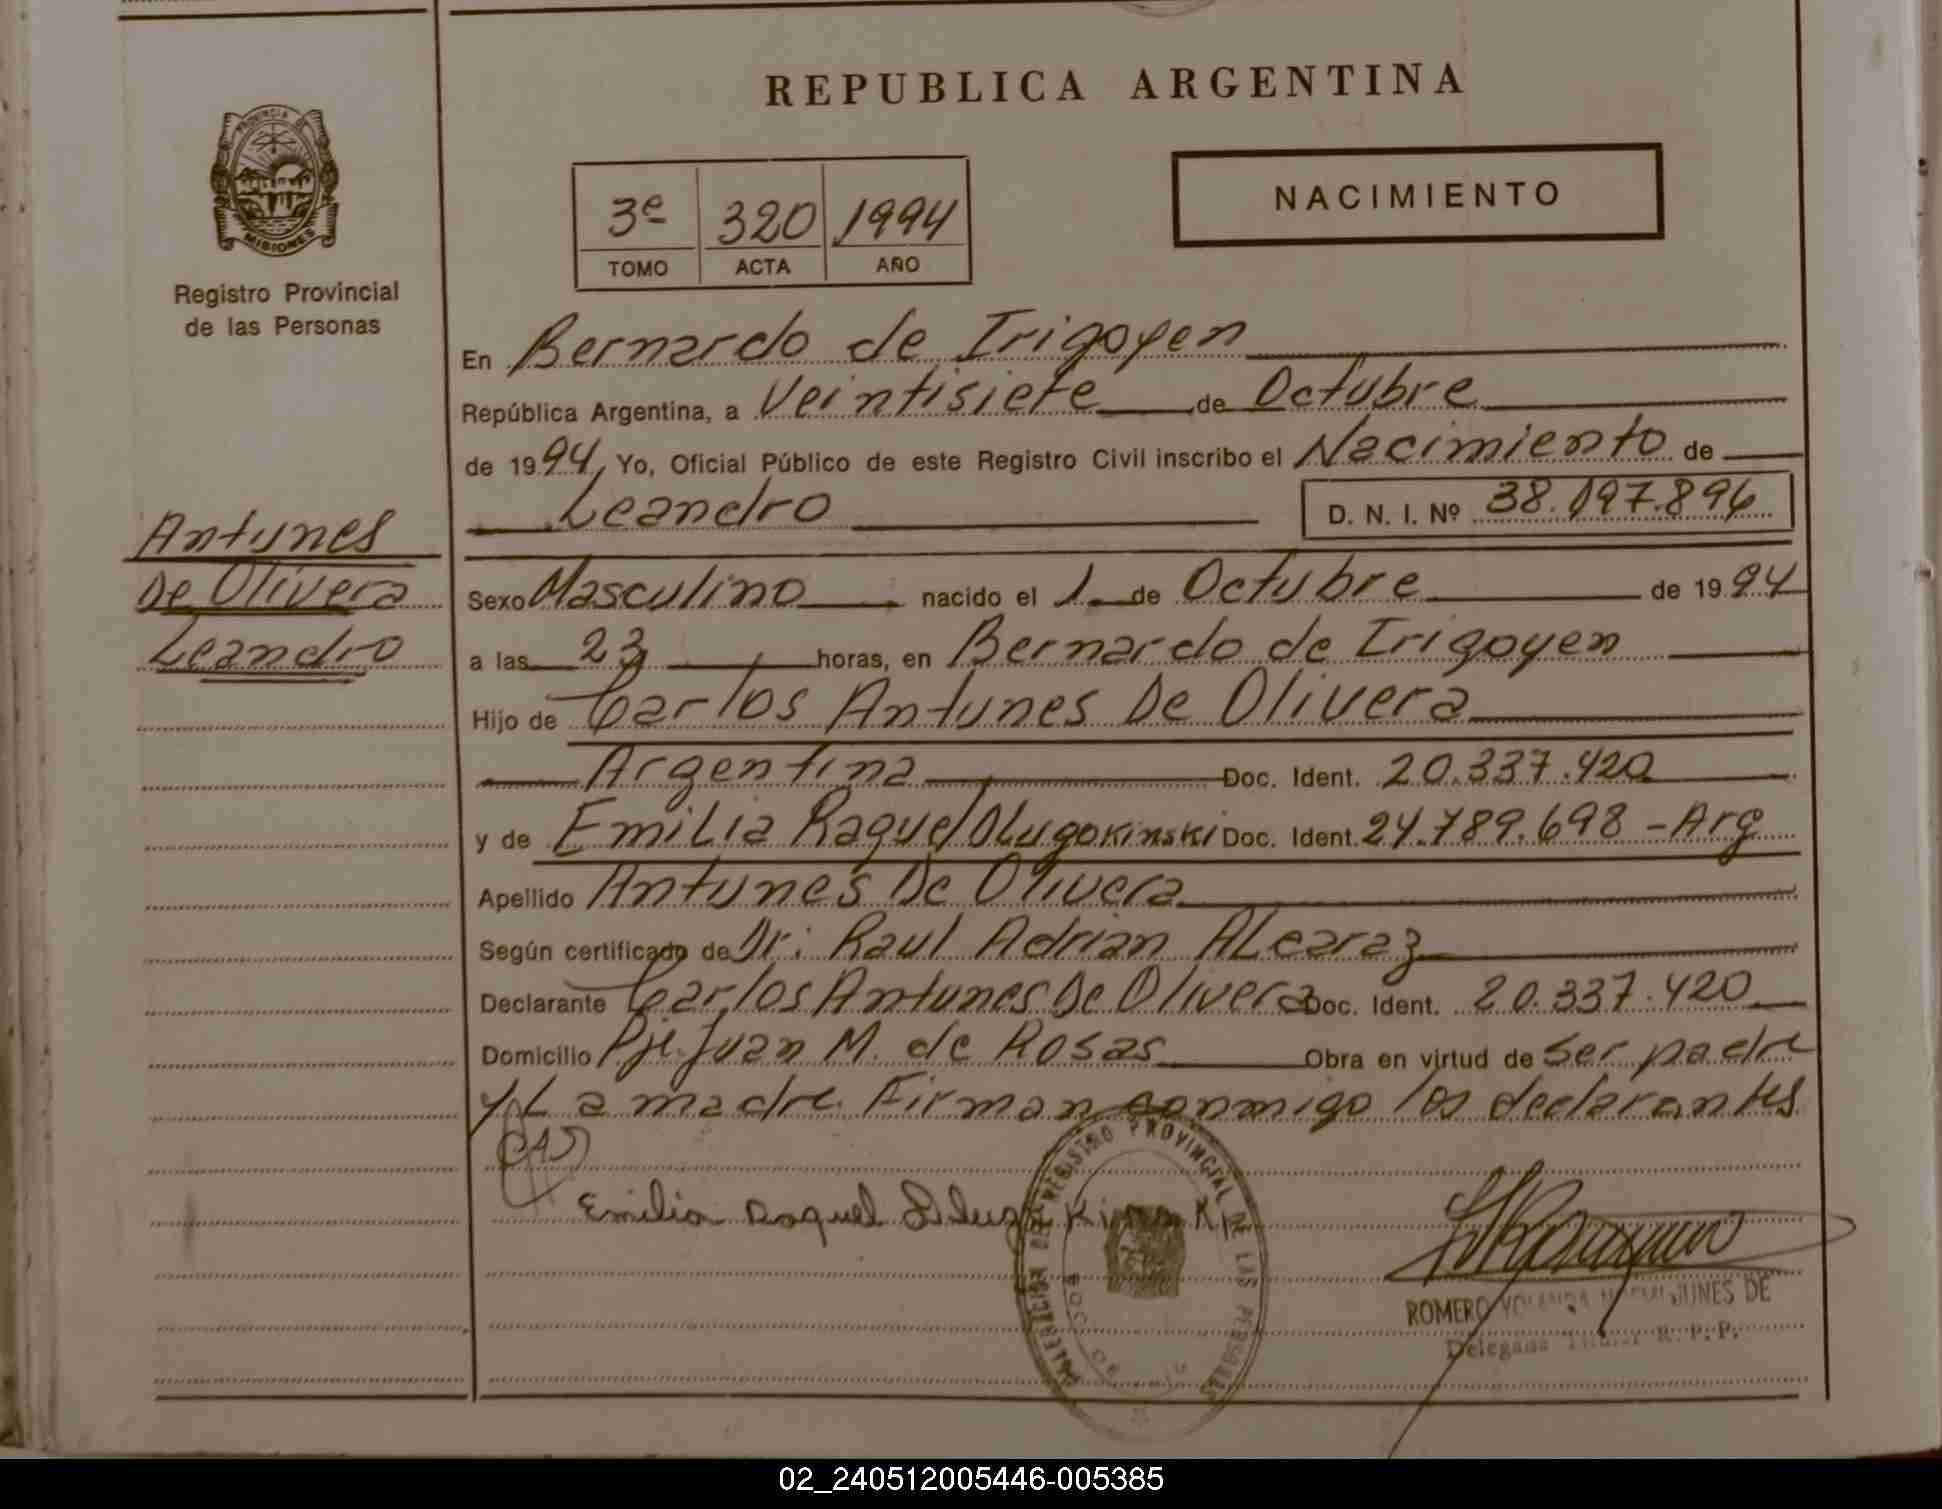 REPUBLICA ARGENTINA
PROVINCIA DE
MISIONES
Registro Provincial
de las Personas
NACIMIENTO
3º 320 1994
TOMO ACTA AÑO
En Bernardo de Irigoyen
República Argentina, a Veintisiete de Octubre
de 1994, Yo, Oficial Público de este Registro Civil inscribo el Nacimiento de
Leandro D. N. I. Nº 38.197.896
Antunes
De Olivera
Leandro
Sexo Masculino nacido el 1 de Octubre de 1994
a las 23 horas, en Bernardo de Irigoyen
Hijo de Carlos Antunes De Olivera
Argentina Doc. Ident. 20.337.420
y de Emilia Raquel Dlugokinski Doc. Ident. 24.789.698 - Arg
Apellido Antunes De Olivera
Según certificado de Dr: Raul Adrian Alcaraz
Declarante Carlos Antunes De Olivera Doc. Ident. 20.337.420
Domicilio Pje. Juan M. de Rosas Obra en virtud de ser padre
y La madre. Firman conmigo los declarantes
CAD
Emilia Raquel Dlugokinski
REGISTRO PROVINCIAL DE LAS PERSONAS
ROMERO YOLANDA DE
Delegada Titular R. P. P.
02_240512005446-005385